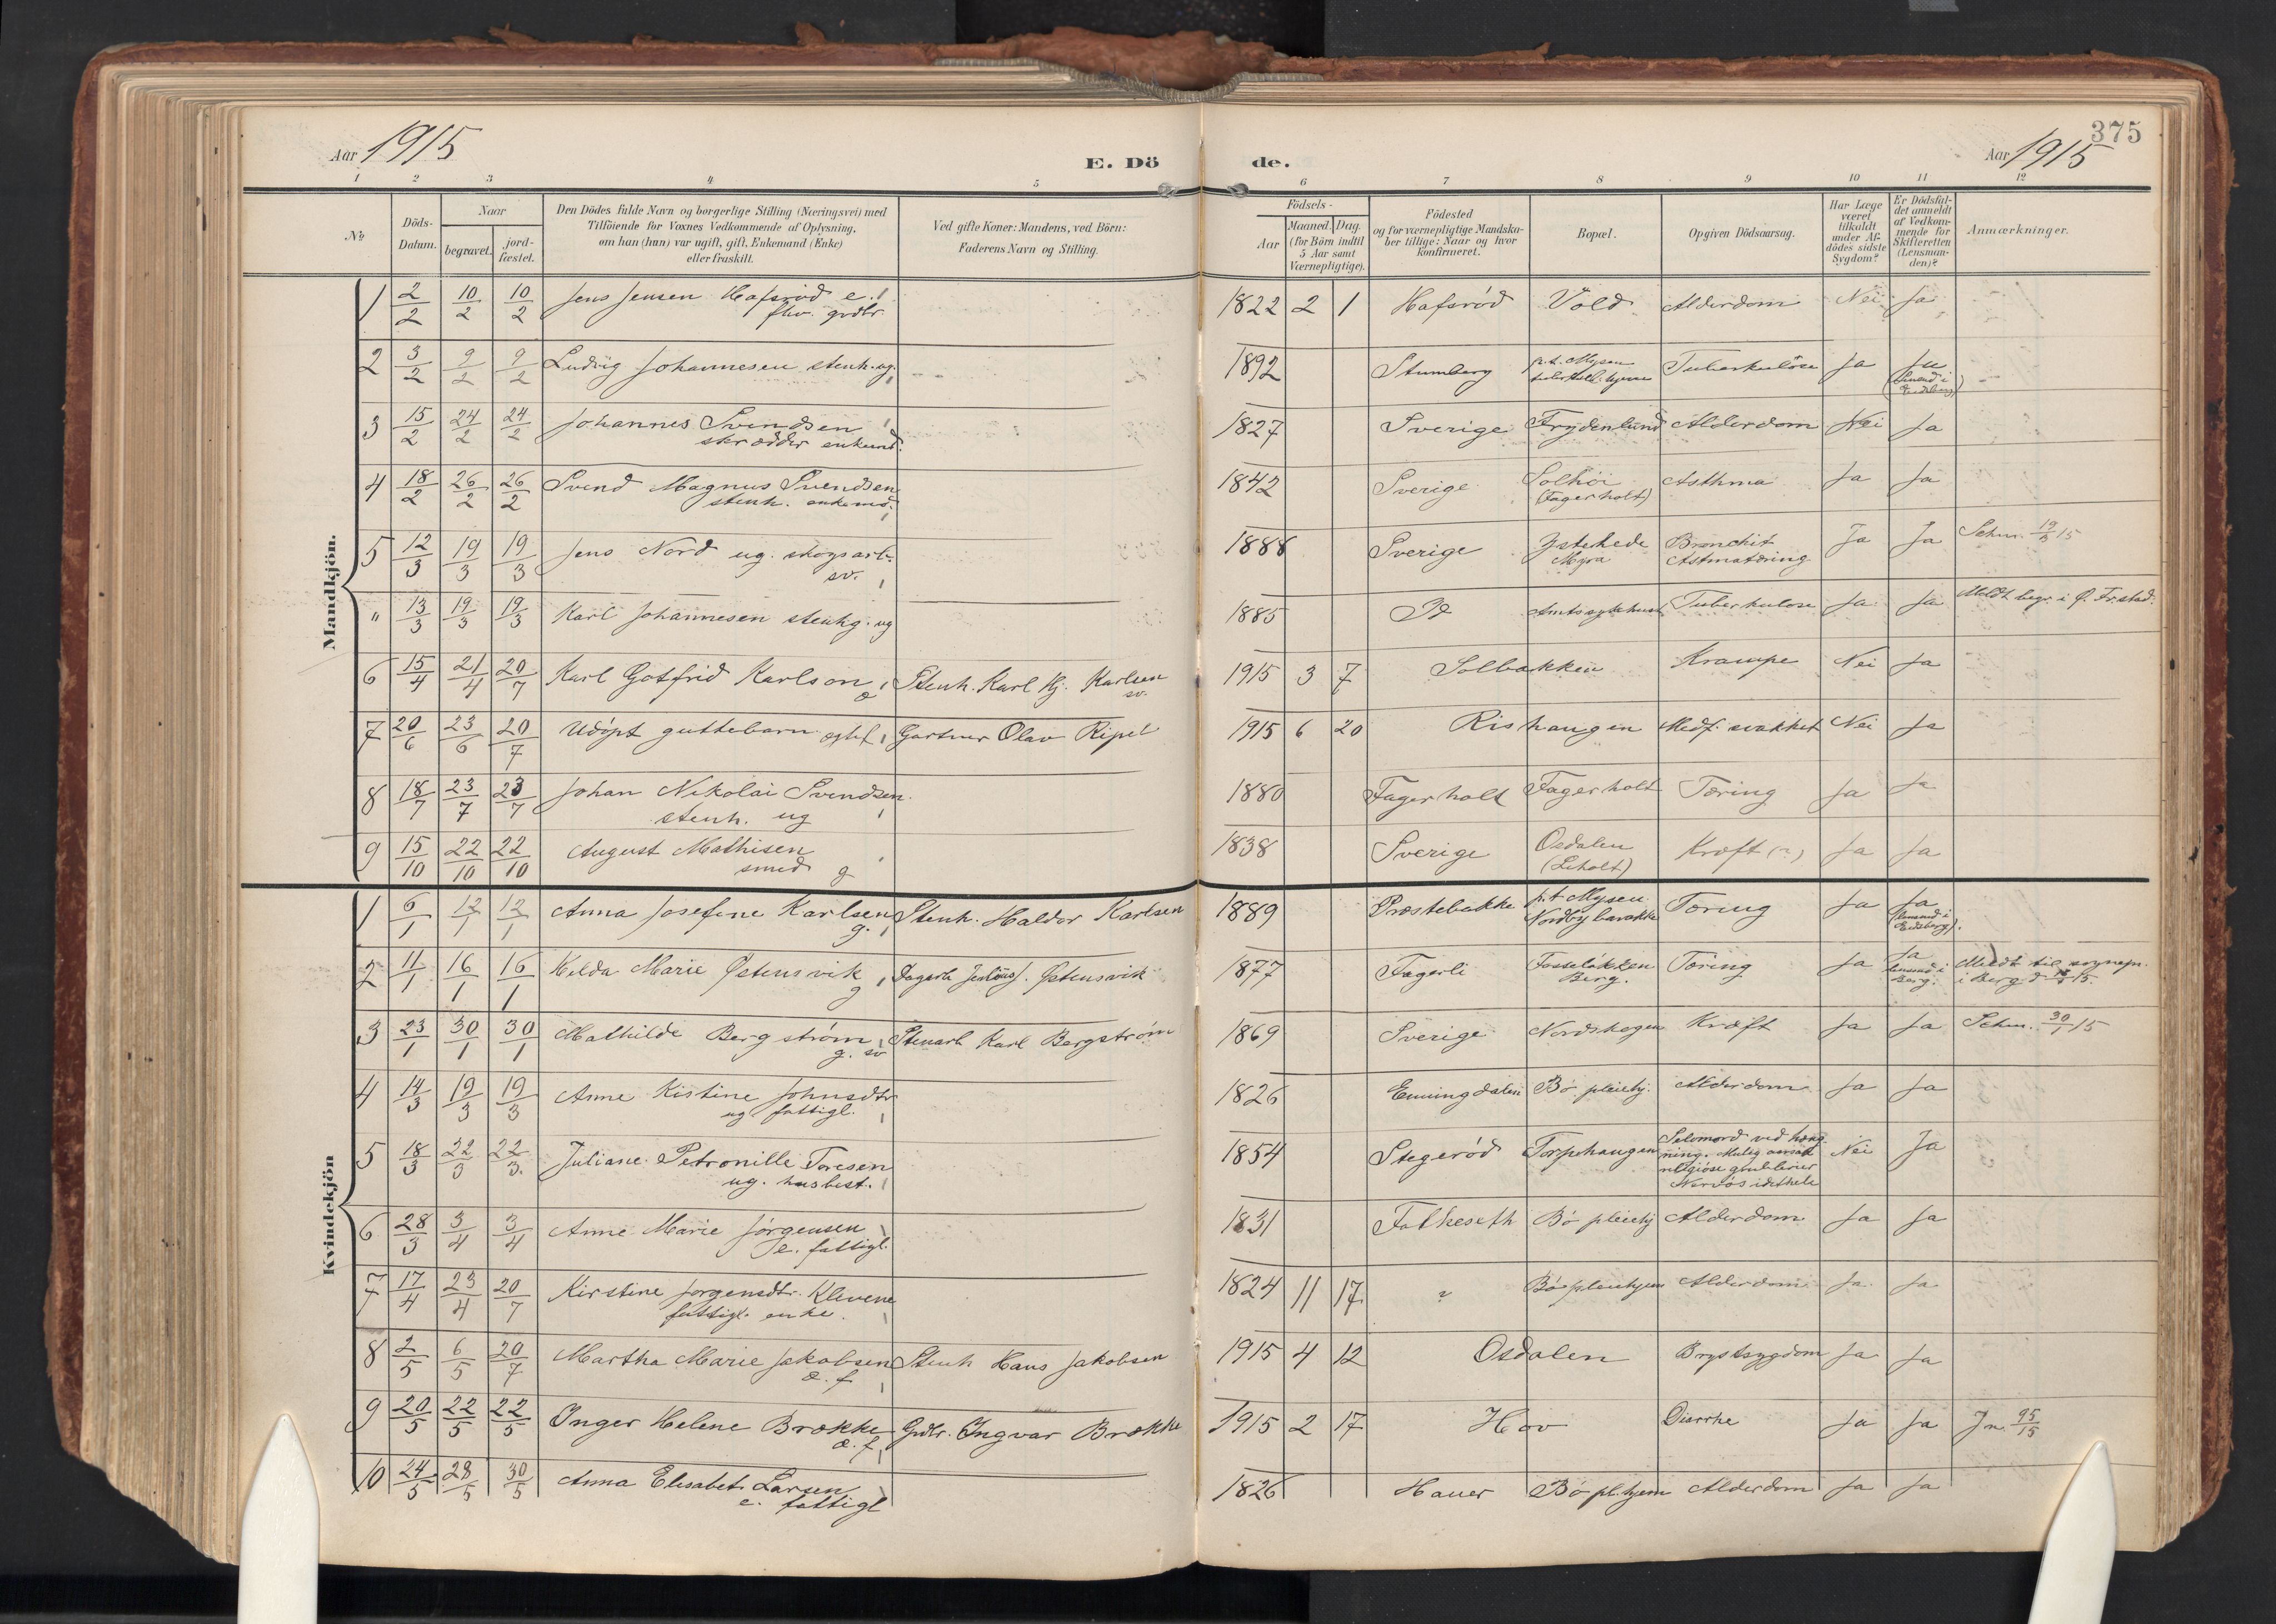 375
Aar 1915
E. Dö
de.
Aar 1915
1 2 3 4 5 6 7 8 9 10 11 12
No
Döds-Datum.
Naar
begravet.
jord-fæstet.
Den Dödes fulde Navn og borgerlige Stilling (Næringsvei) med
Tilföiende for Voxnes Vedkommende af Oplysning,
om han (hun) var ugift, gift, Enkemand (Enke)
eller fraskilt.
Ved gifte Koner: Mandens, ved Börn:
Faderens Navn og Stilling.
Födsels-
Aar
Maaned.
Dag.
(for Börn indtil
5 Aar samt
Værnepligtige).
Födested
og for værnepligtige Mandska-
ber tillige: Naar og hvor
konfirmeret.
Bopæl.
Opgiven Dödsaarsag.
Har Læge
været
tilkaldt
under Af-
dödes sidste
Sygdom?
Er Dödsfal-
det anmeldt
af Vedkom-
mende for
Skifteretten
(Lensman-
den)?
Anmærkninger.
Mandkjön.
1 2/2 10/2 10/2 Jens Jensen Hafsrød e. 1822 2 1 Hafsrød Vold Alderdom Nei Ja
fhv. grdbr
2 3/2 9/2 9/2 Ludvig Johannesen stenh. ug. 1892 Stumberg p.t. Mysen Tuberkuløse Ja Ja
3 15/2 24/2 24/2 Johannes Svendsen 1827 Sverige Frydenlund Alderdom Nei Ja
skrædder enkemd.
4 18/2 26/2 26/2 Svend Magnus Svendsen 1842 Sverige Solhöi Asthma Ja Ja
stenh. enkemd. (Fagerholt)
5 12/3 19/3 19/3 Jens Nord ug. skogsarb. 1888 Sverige Ystehede Bronchit Ja Ja 19/3 15
sv. Myra Astmatæring
" 13/3 19/3 19/3 Karl Johannesen stenhg. ug 1885 Id Amtssykehuset Tuberkulose Ja Ja Meldt begr. i Ø. Fr.stad.
6 15/4 21/4 20/7 Karl Gotfrid Karlson Stenh. Karl Hj. Karlsen 1915 3 7 Solbakken Krampe Nei Ja
sv.
7 20/6 23/6 20/7 Udöpt guttebarn Gartner Olav Ripel 1915 6 20 Rishaugen Medf. svakhet Nei Ja
8 18/7 23/7 23/7 Johan Nikolai Svendsen 1880 Fagerholt Fagerholt Tæring Ja Ja
stenh. ug
9 15/10 22/10 22/10 August Mathisen 1838 Sverige Osdalen Kræft (?) Ja Ja
smed g (Liholt)
Kvindekjön
1 6/1 12/1 12/1 Anna Josefine Karlsen Stenh. Haldor Karlsen 1889 Præstebakke p.t Mysen Tæring Ja Ja
g. Nordby barakke (lensmd i
Eidsberg).
2 11/1 16/1 16/1 Helda Marie Østensvik Dagarb. J. Østensvik 1877 Fagerli Fosseløkken Tæring Ja Ja Meldt til sognepr.
g Berg. lensmd i Berg. i Berg
3 23/1 30/1 30/1 Mathilde Bergstrøm Stenarb Karl Bergstrøm 1869 Sverige Nordskogen Kræft Ja Ja 30/1 15
g. sv
4 14/3 19/3 19/3 Anne Kistine Johnsdtr 1826 Enningdalen Bö pleiehj. Alderdom Ja Ja
ug fattigl.
5 18/3 22/3 22/3. Juliane Petronille Toresen 1854 Stegerød Torpshaugen Selvmord ved hæng- Nei Ja
ug. husbest. ning. Mulig aarsak
religiøse grublerier
Nervøs idethele
6 28/3 3/4 3/4 Anne Marie Jørgensen 1831 Folkeseth Bö pleiehj Alderdom Ja Ja
e. fattigl.
7 17/4 23/4 20/7 Kirstine Jorgensdtr. Klevene 1824 11 17 ? Bö pleiehjem Alderdom Ja Ja
fattigl. enke.
8 2/5 6/5 20/7 Martha Marie Jakobsen Stenh Hans Jakobsen 1915 4 12 Osdalen Brystsygdom Ja Ja
æ. f
9 20/5 22/5 22/5 Inger Helene Brække Grdbr. Ingvar Brække 1915 2 17 Hov Diarrhe Ja Ja Jn. 95/15
æ. f.
10 24/5 28/5 30/5 Anna Elisabet Larsen 1826 Hauer Bö pl.hjem Alderdom Ja Ja
e. fattigl